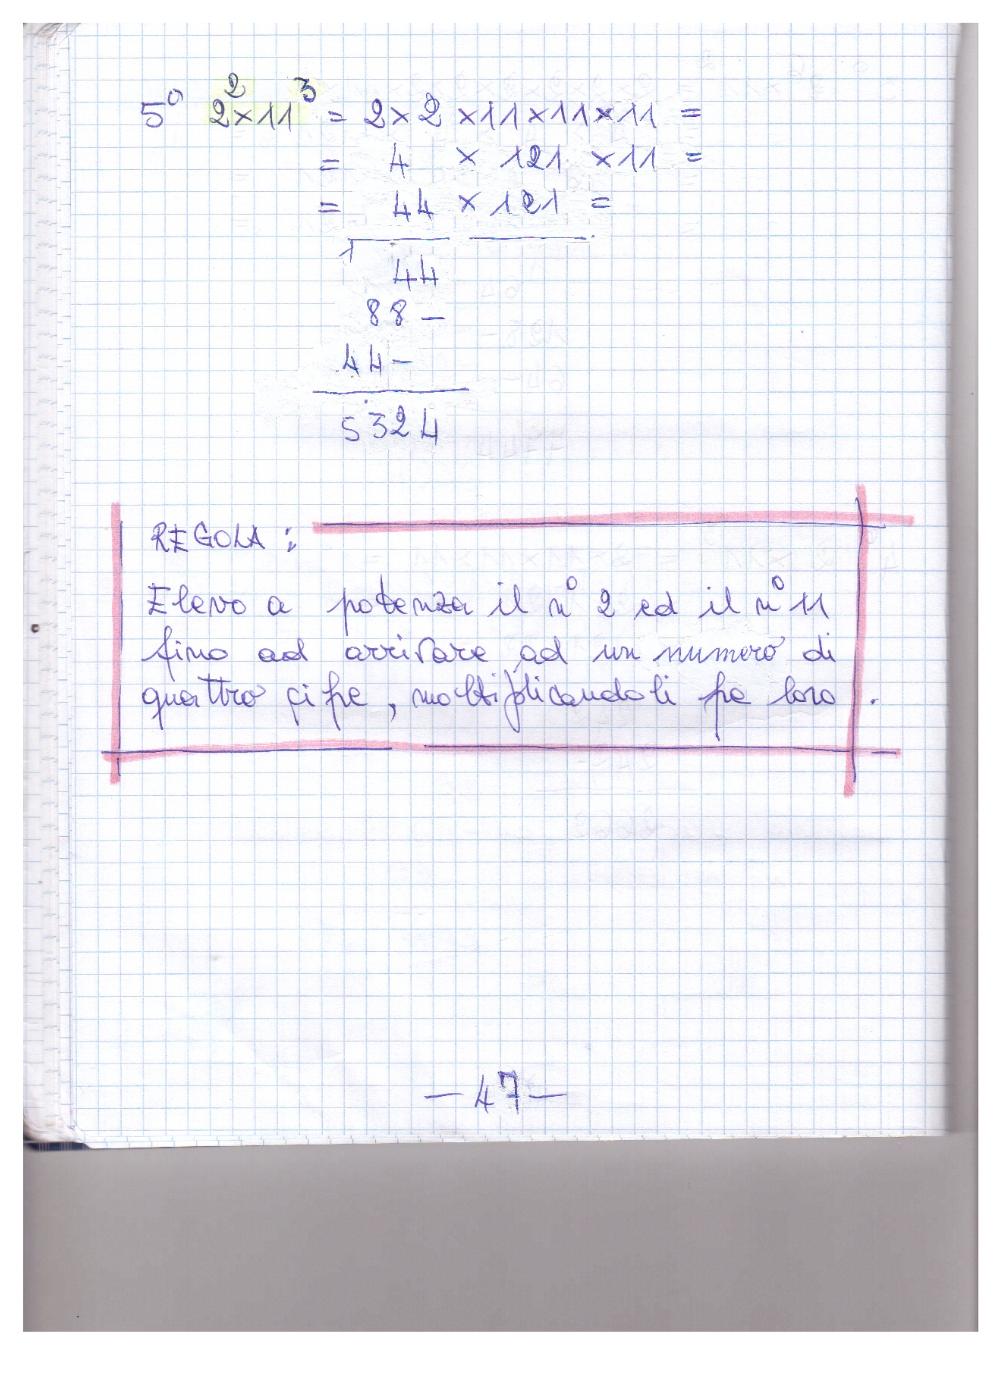 5° 2²×11³ = 2×2×11×11×11 =
= 4 × 121 ×11 =
= 44 × 121 =
1
44
88–
44–
5324
REGOLA:
Elevo a potenza il n° 2 ed il n° 11
fino ad arrivare ad un numero di
quattro cifre, moltiplicandoli fra loro.
– 47 –